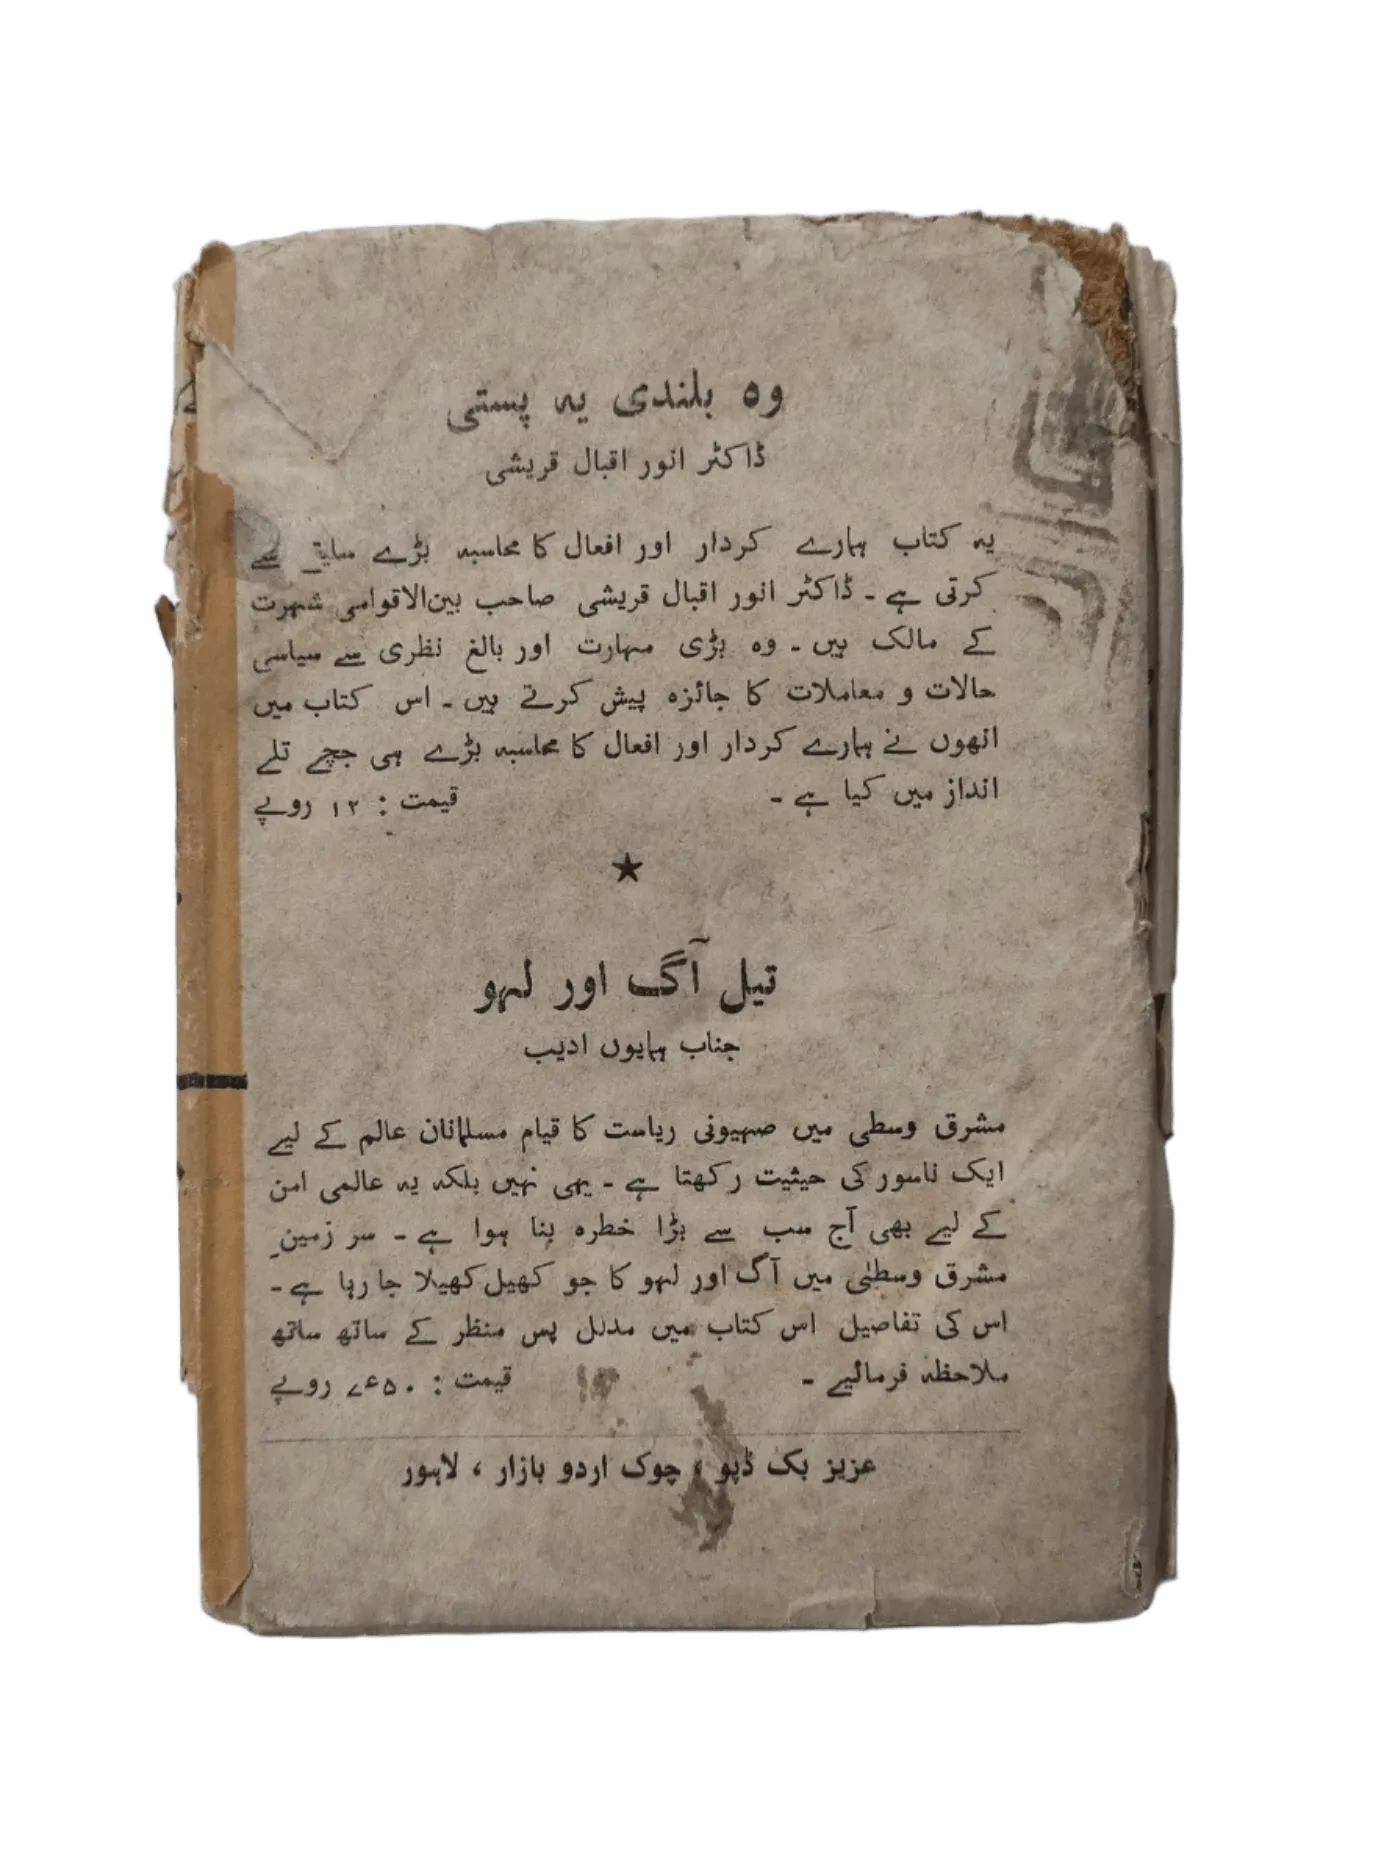 وہ بلندی یہ پستی
ڈاکٹر انور اقبال قریشی
یہ کتاب ہمارے کردار اور افعال کا محاسبہ بڑے سلیقے سے
کرتی ہے ۔ ڈاکٹر انور اقبال قریشی صاحب بین‌الاقوامی شہرت
کے مالک ہیں ۔ وہ بڑی مہارت اور بالغ نظری سے سیاسی
حالات و معاملات کا جائزہ پیش کرتے ہیں ۔ اس کتاب میں
انھوں نے ہمارے کردار اور افعال کا محاسبہ بڑے ہی جچے تلے
انداز میں کیا ہے ۔ قیمت : ۱۲ روپے
★
تیل آگ اور لہو
جناب ہمایوں ادیب
مشرق وسطی میں صہیونی ریاست کا قیام مسلمانان عالم کے لیے
ایک ناسور کی حیثیت رکھتا ہے ۔ یہی نہیں بلکہ یہ عالمی امن
کے لیے بھی آج سب سے بڑا خطرہ بنا ہوا ہے ۔ سر زمین
مشرق وسطیٰ میں آگ اور لہو کا جو کھیل کھیلا جا رہا ہے ۔
اس کی تفاصیل اس کتاب میں مدلل پس منظر کے ساتھ ساتھ
ملاحظہ فرمائیے ۔ قیمت : ۷ء۵۰ روپے
عزیز بک ڈپو ، چوک اردو بازار ، لاہور